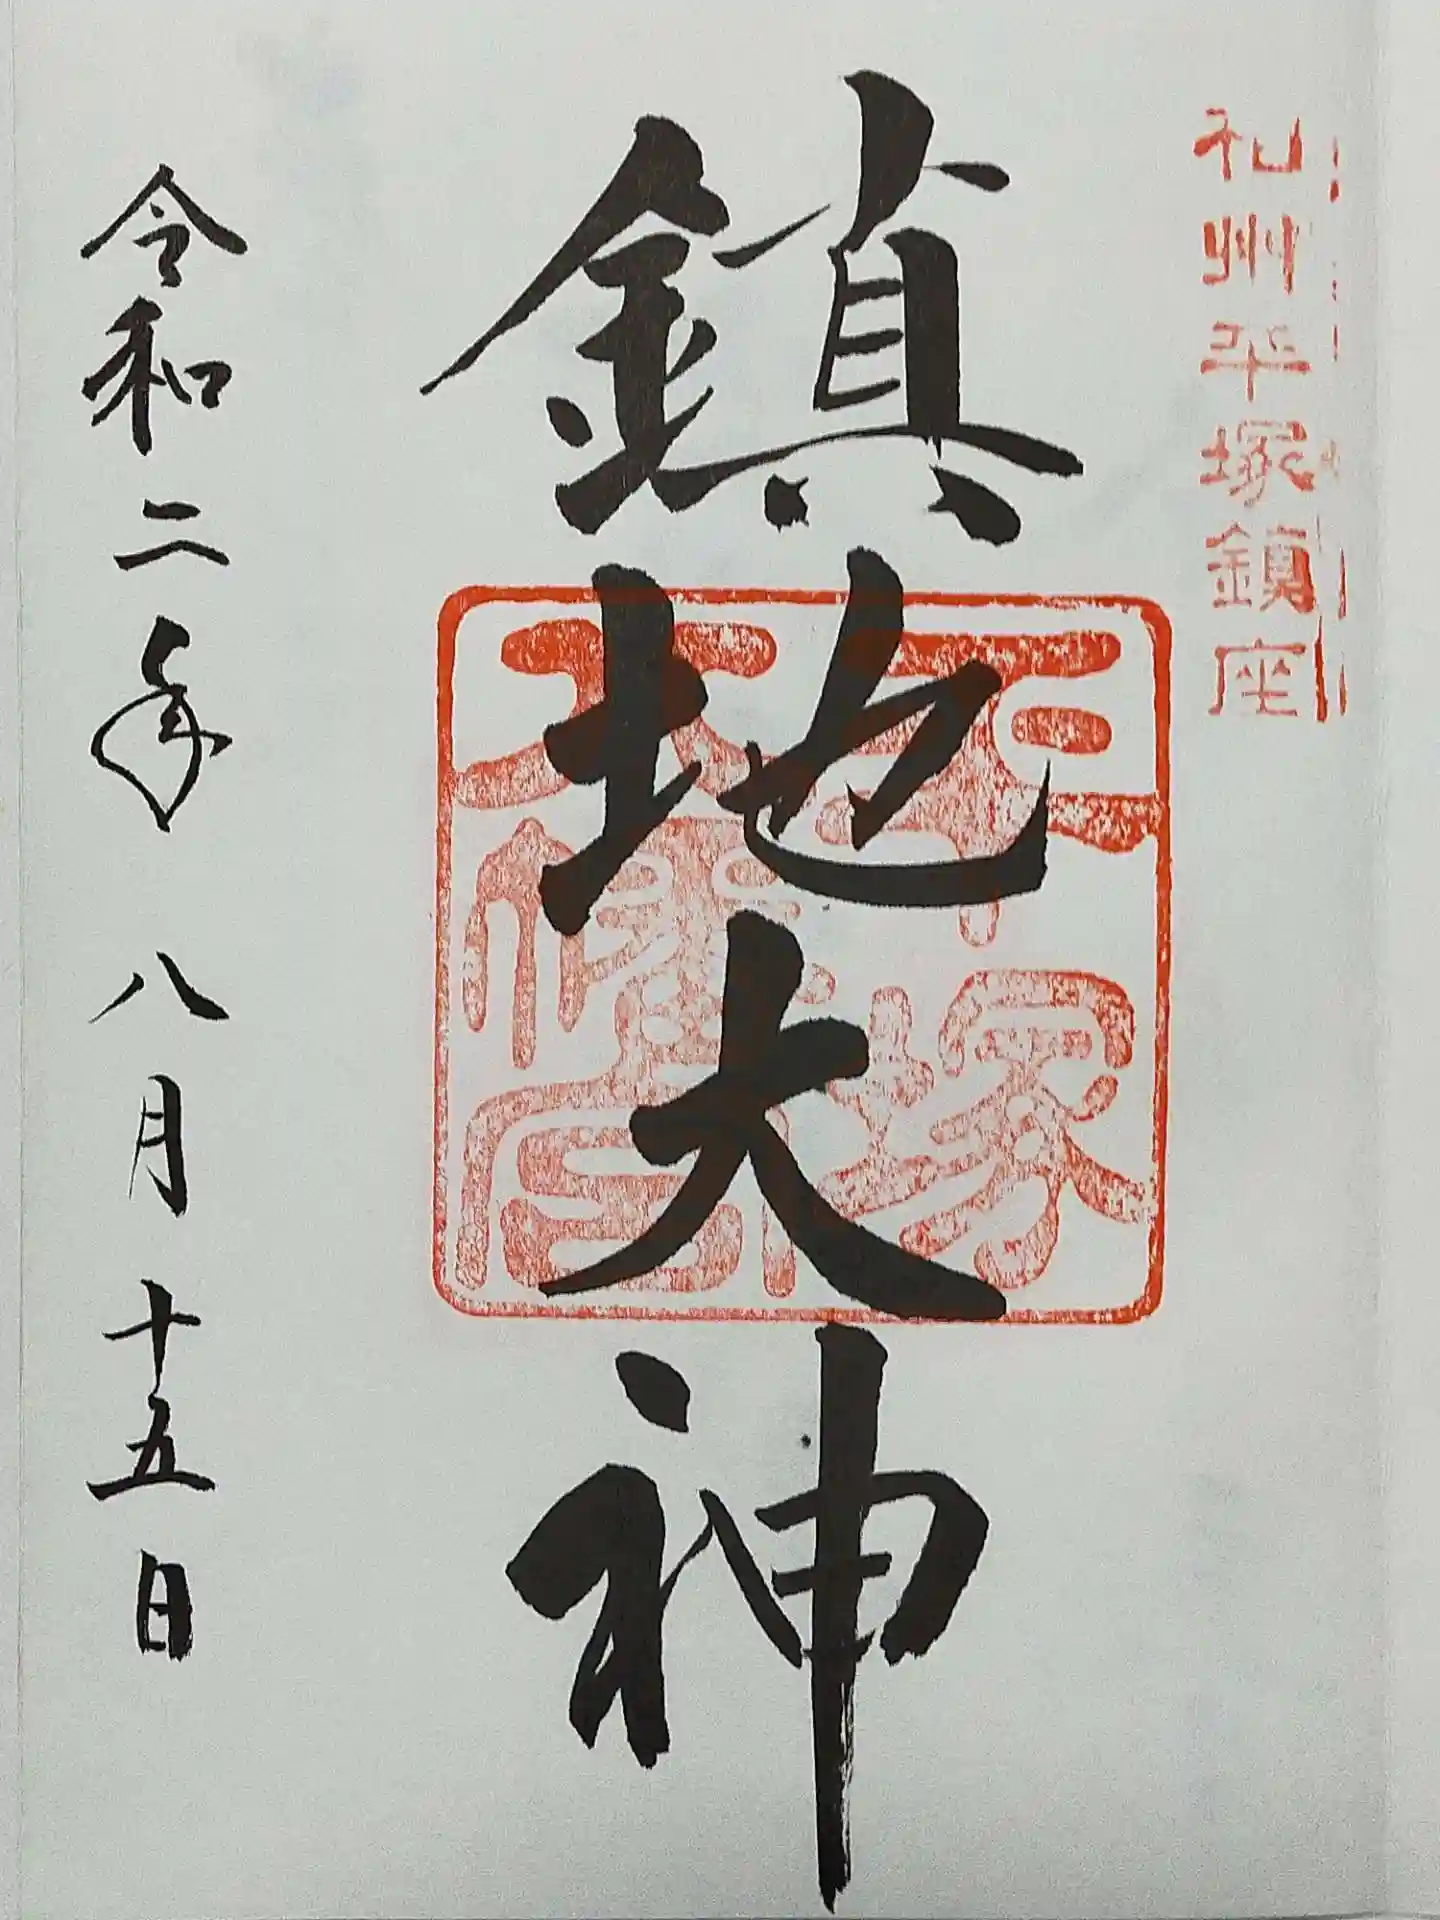 相州平塚鎮座
鎮地大神
平塚
八幡宮
令和二年八月十五日